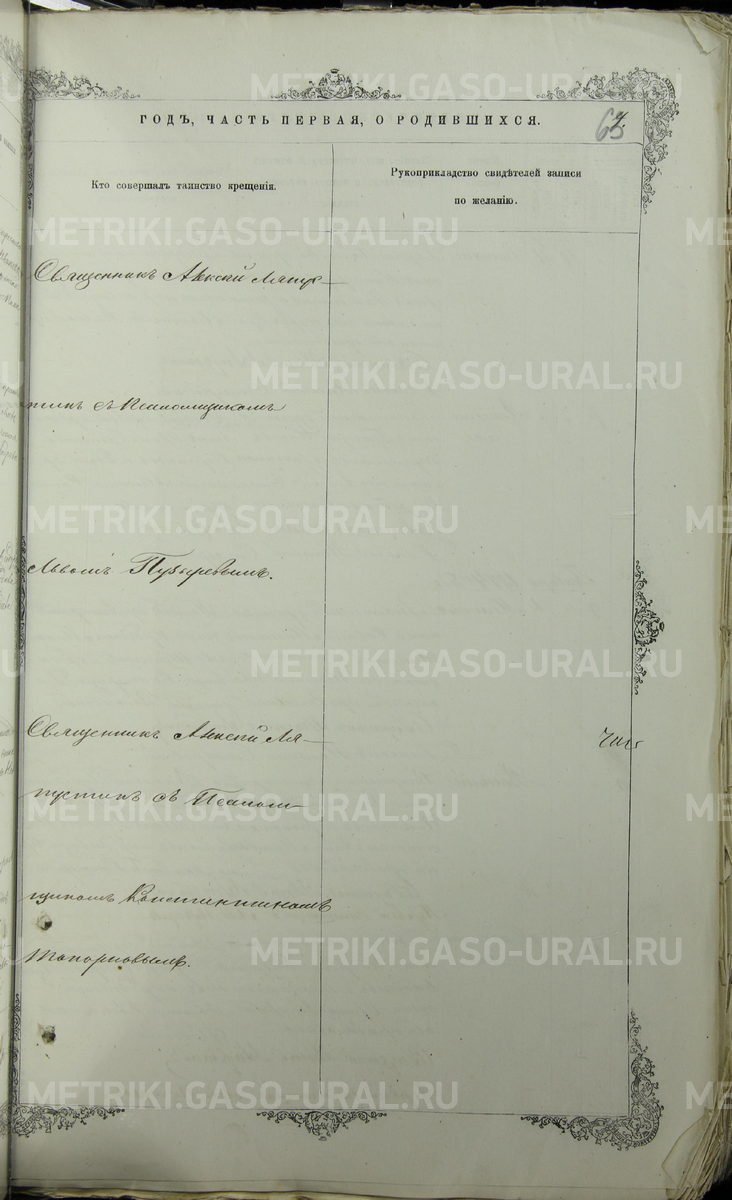 METRIKI.GASO-URAL.RU
ГОДЪ, ЧАСТЬ ПЕРВАЯ, О РОДИВШИХСЯ.
Кто совершалъ таинство крещенія.
Рукоприкладство свидѣтелей записи
по желанію.
METRIKI.GASO-URAL.RU
Священникъ Алексій Ляпус-
METRIKI.GASO-URAL.RU
тинъ съ Псаломщикомъ
METRIKI.GASO-URAL.RU
Львомъ Пузыревымъ.
METRIKI.GASO-URAL.RU
Священникъ Алексій Ля-
пустинъ съ Псалом-
METRIKI.GASO-URAL.RU
щикомъ Константиномъ
Топорковымъ.
METRIKI.GASO-URAL.RU
METRIKI.GASO-URAL.RU